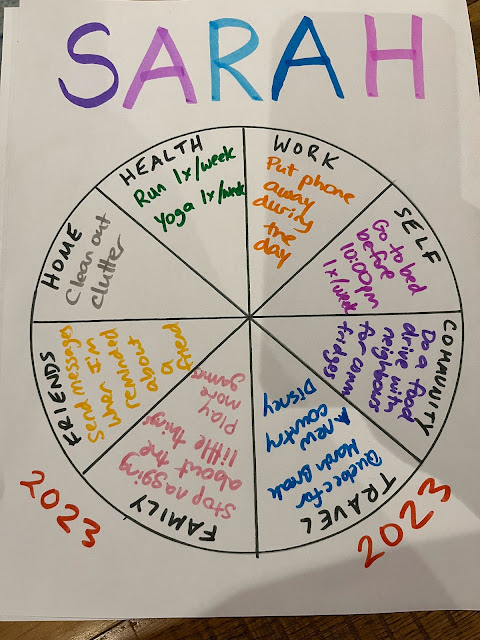 SARAH
HEALTH
Run 1x/week
Yoga 1x/week
WORK
Put phone
away
during
the
day
SELF
Go to bed
before
10:00pm
1x/week
COMMUNITY
Do a food
drive with
neighbours
for comm
fridges
TRAVEL
Quebec for
March Break
A new
country
Disney
FAMILY
Stop nagging
about the
little things
Play
more
games
FRIENDS
Send messages
when I'm
reminded
about
a
friend
HOME
Clean out
clutter
2023
2023